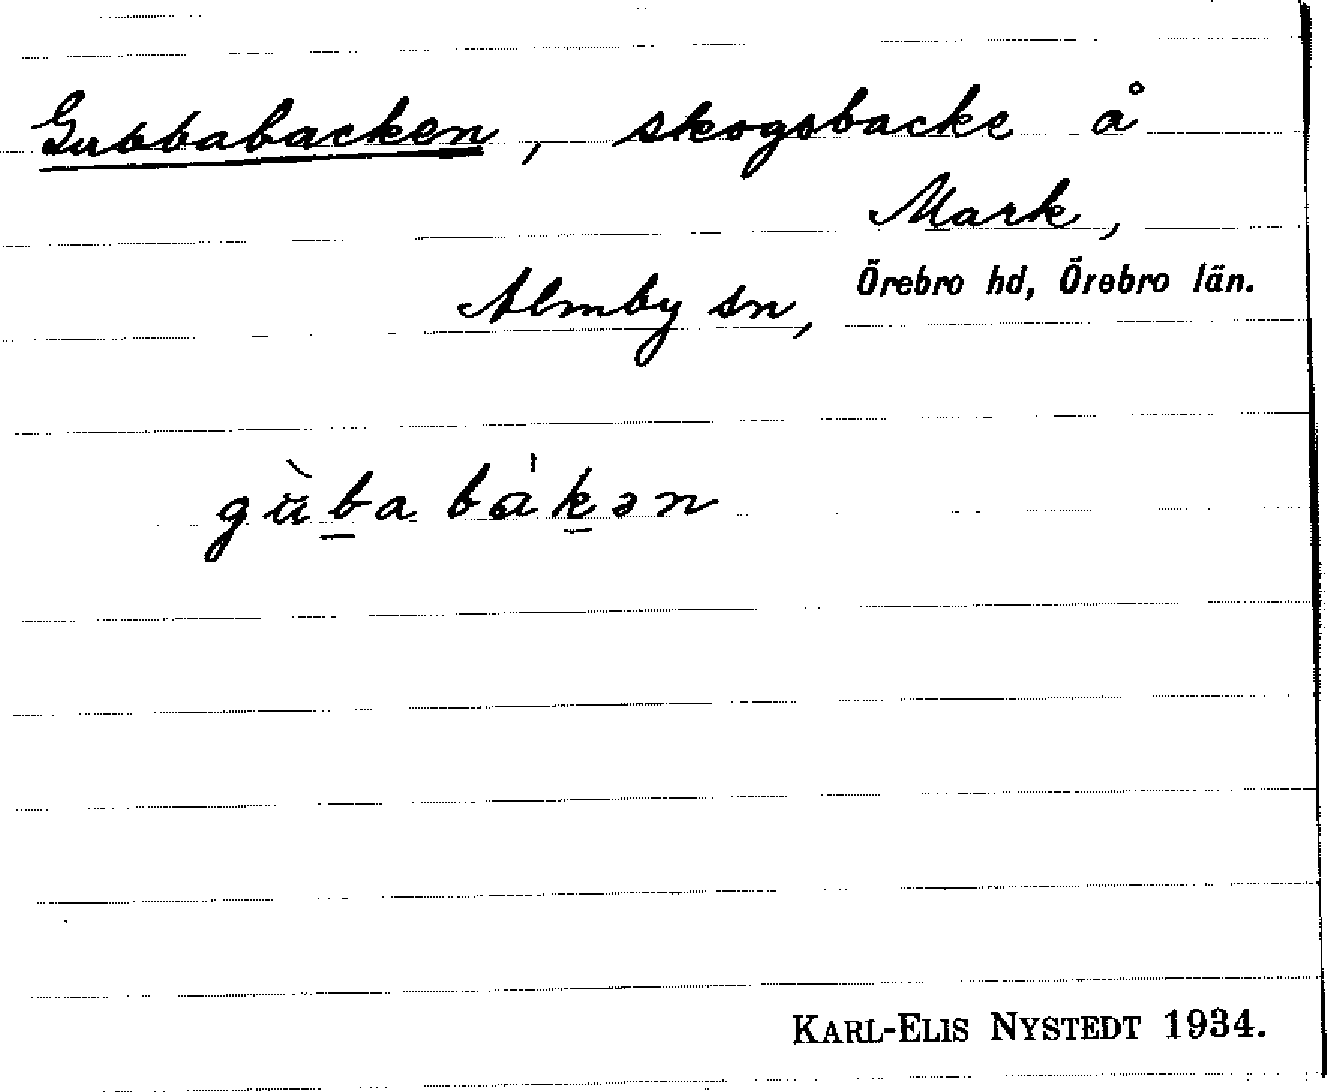 Gubbabacken, skogsbacke å
Mark,
Almby sn, Örebro hd, Örebro län.
gùb̲abák̲ən
KARL-ELIS NYSTEDT 1934.